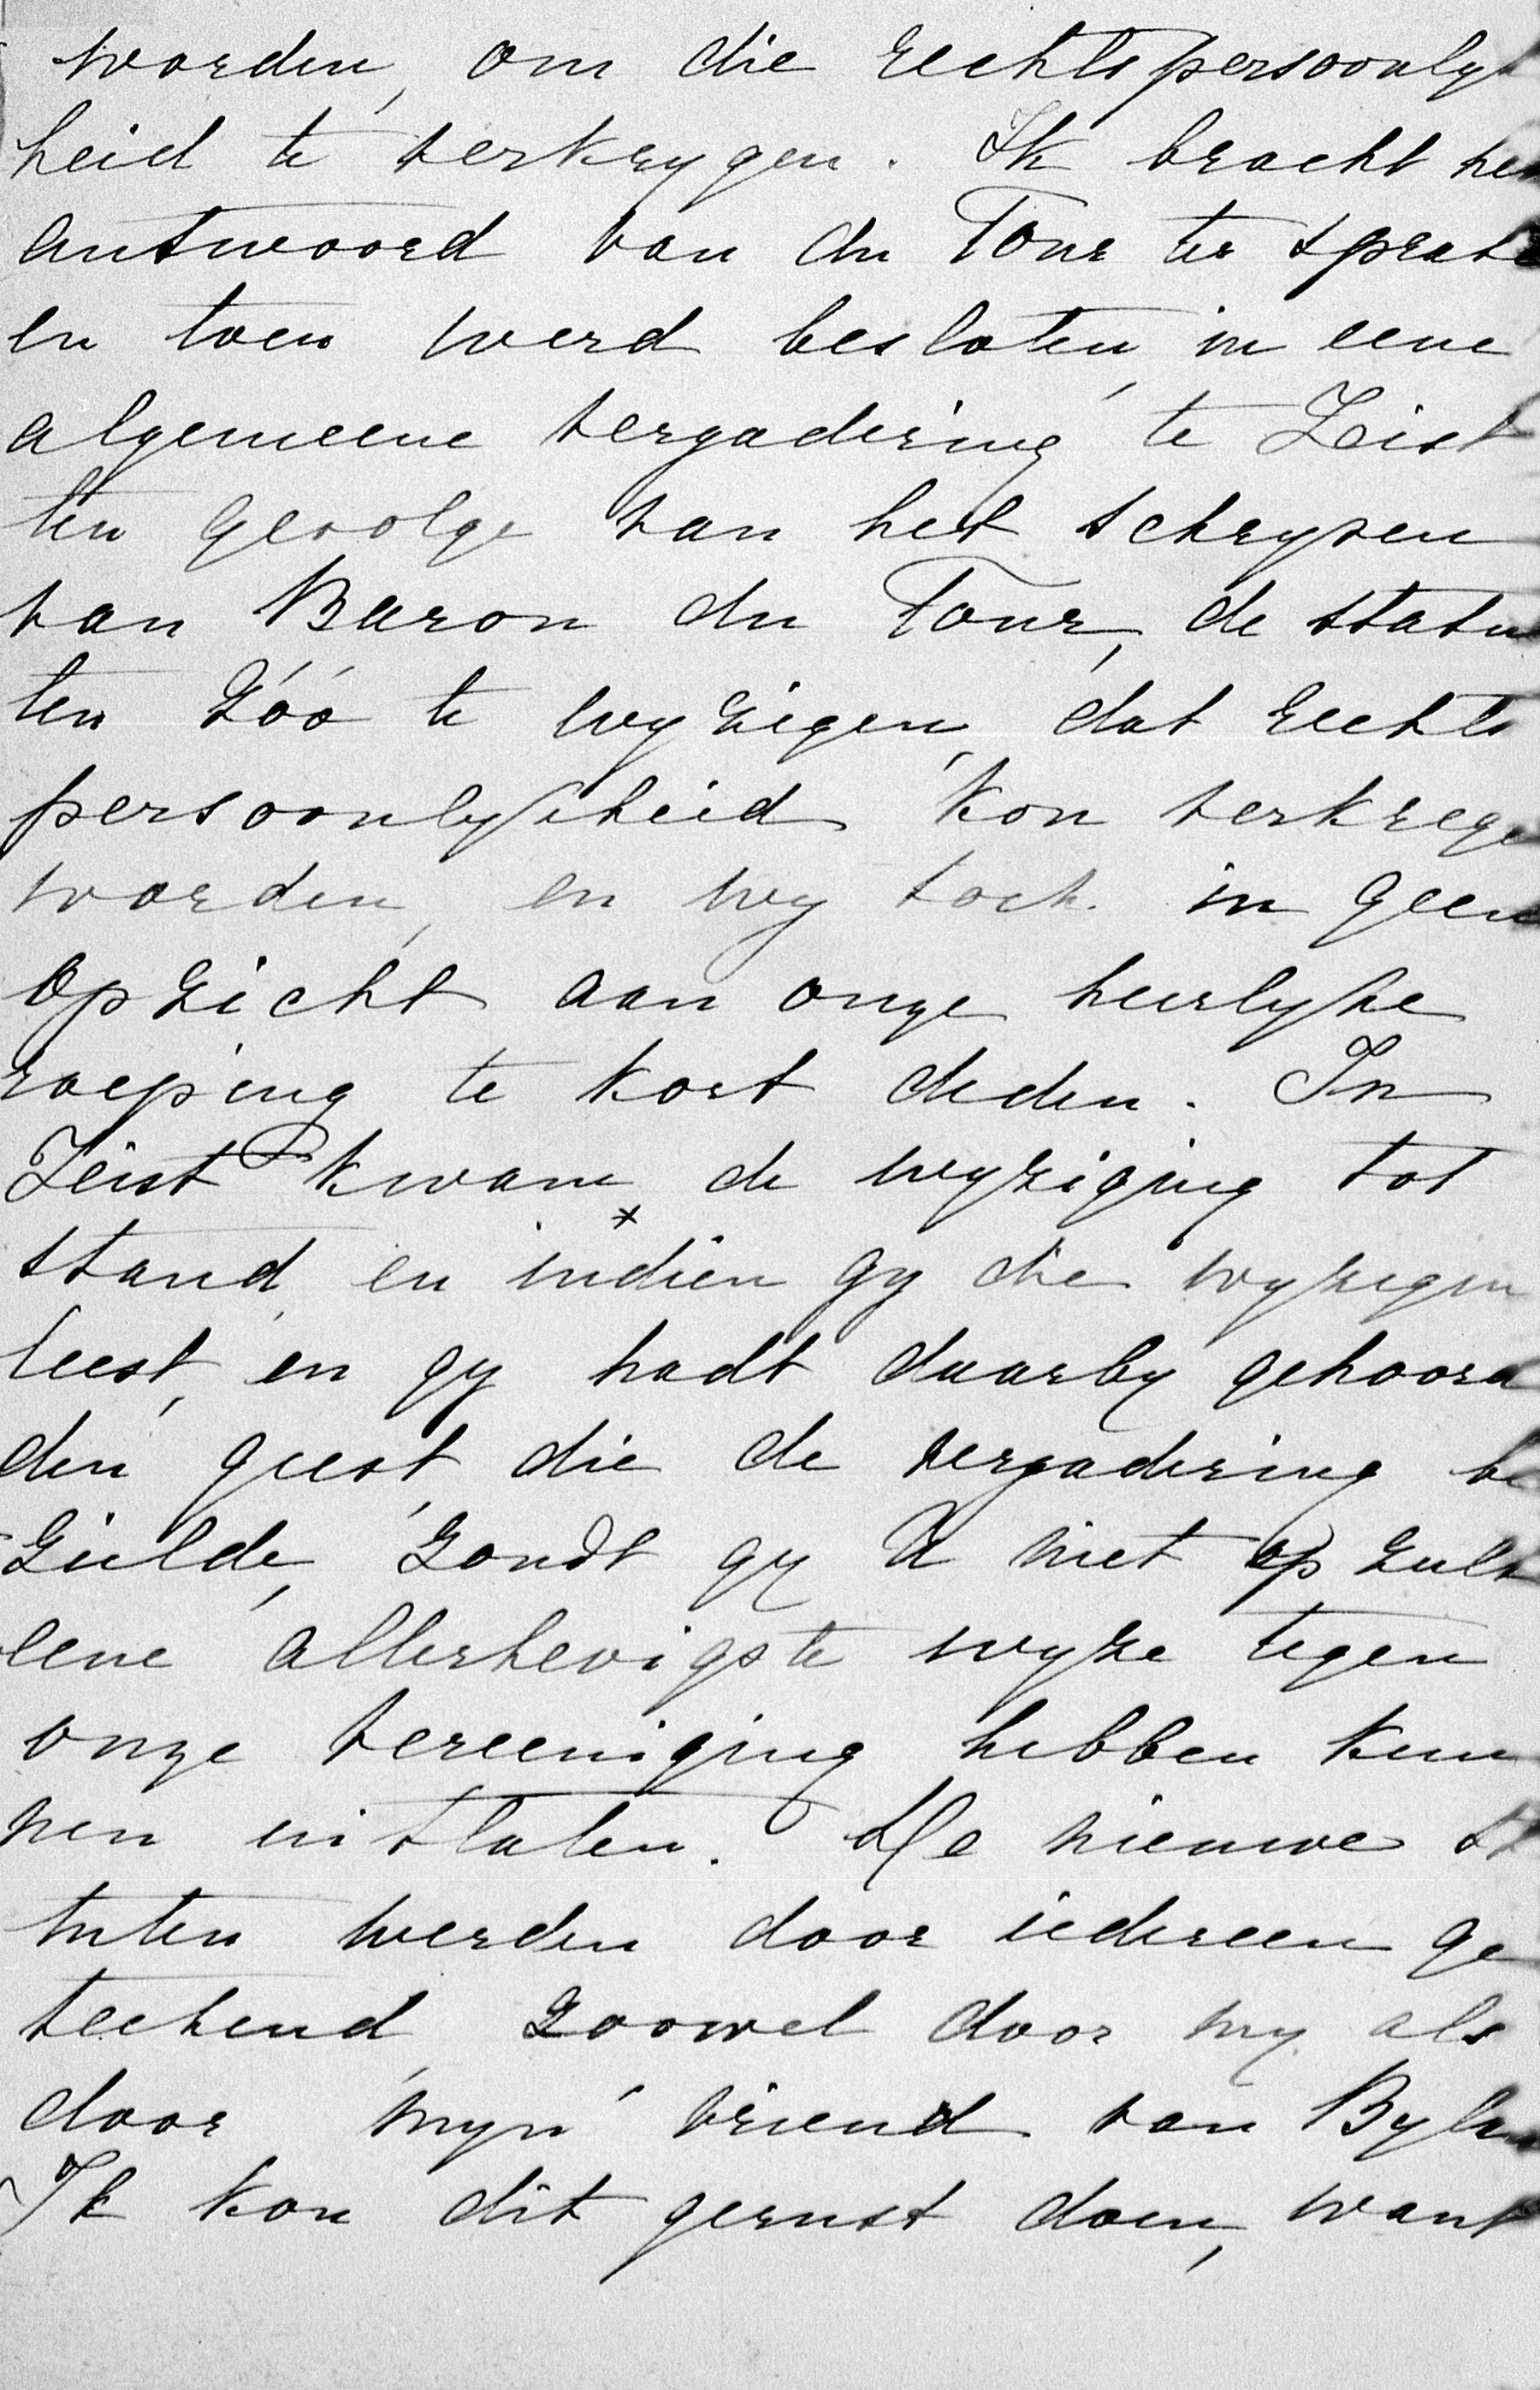 worden, om die rechtspersoonlyk
heid te verkrygen. Ik bracht het
antwoord van du Tour ter sprake
en toen werd besloten, in eene
algemeene vergadering te Zeist
ten gevolge van het schryven
van Baron du Tour, de statu
ten zóó te wyzigen, dat rechts
persoonlykheid kon verkregen
worden, en wy toch in geen
opzicht aan onze heerlyke
roeping te kort deden. In
Zeist kwam de wyziging tot
*
stand, en indien gy die wyzigin
leest, en gy hadt daarby gehoord
den geest, die de vergadering be
zielde, zoudt gy U niet op zulk
eene allerhevigste wyze tegen
onze vereeniging hebben kun
nen uitlaten. De nieuwe st
tuten werden door iedereen ge
teekend, zoowel door my als
door myn vriend van Byla
Ik kon dit gerust doen, want